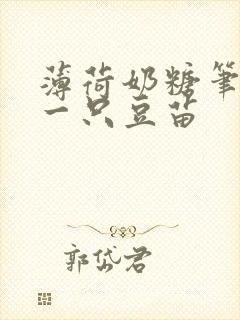 薄荷奶糖笔
一只豆苗
郭岱君